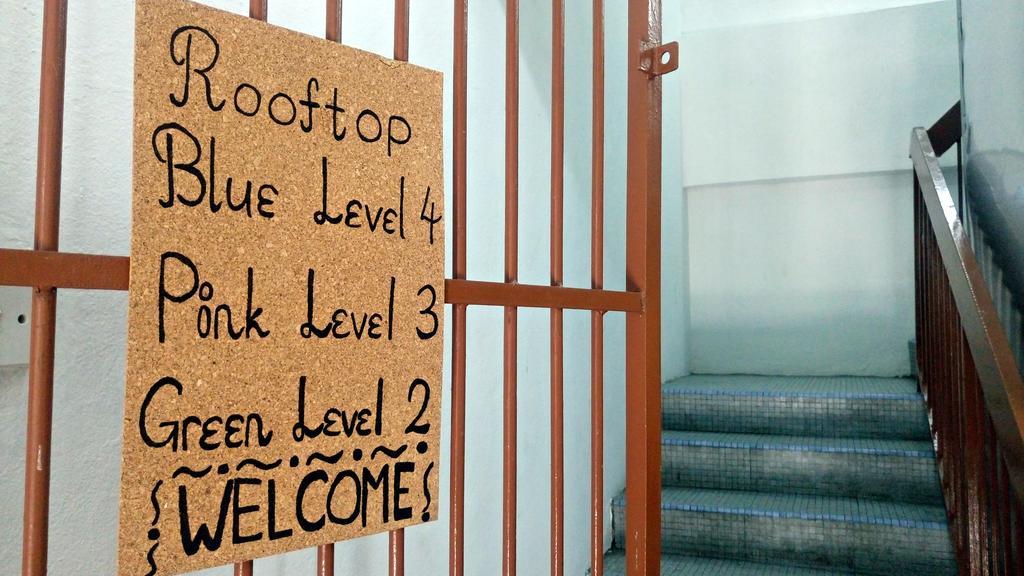 Rooftop
Blue Level 4
Pink Level 3
Green Level 2
WELCOME